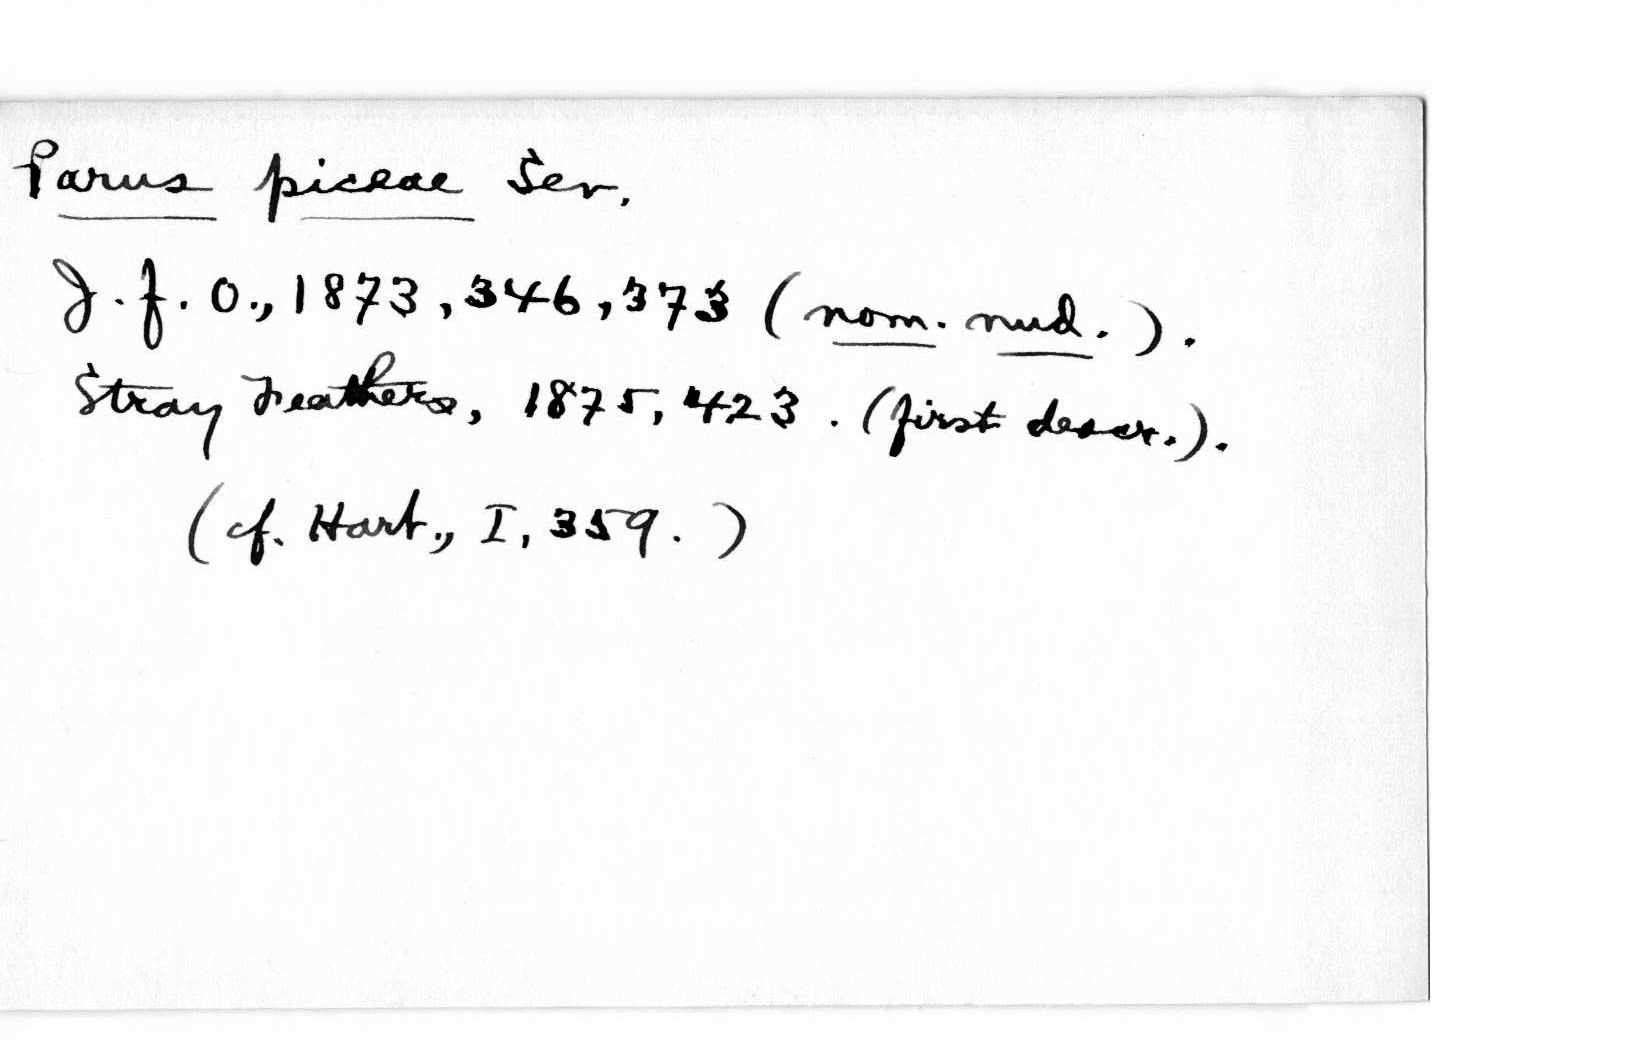 Parus piceae Sev.
J. f. O., 1873, 346, 373 (nom. nud.).
Stray Feathers, 1875, 423. (first descr.).
(cf. Hart., I, 359.)